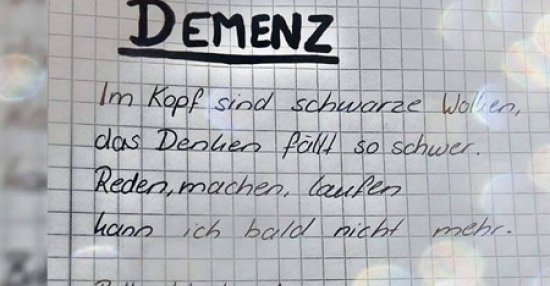 DEMENZ
Im Kopf sind schwarze Wolken,
das Denken fällt so schwer.
Reden, machen, laufen
kann ich bald nicht mehr.